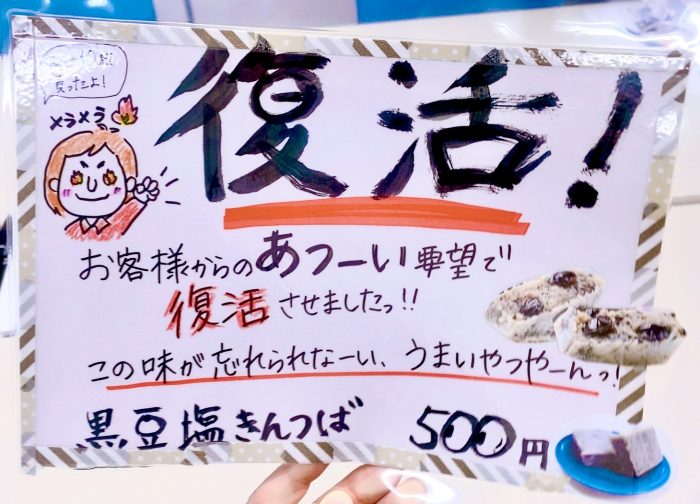 買ったよ!
メラメラ
復活!
お客様からのあつーい要望で
復活させましたっ!!
この味が忘れられなーい、うまいやつやーんっ!
黒豆塩きんつば 500円